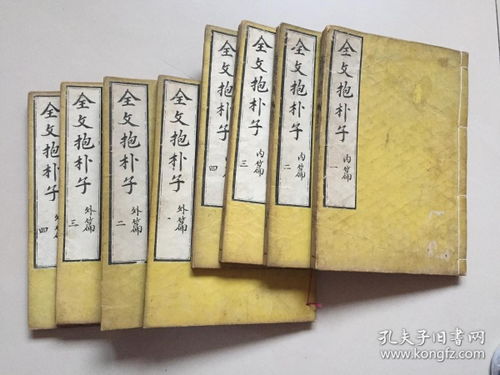 全文抱朴子
内篇 一
全文抱朴子
内篇 二
全文抱朴子
内篇 三
全文抱朴子
四
全文抱朴子
外篇
全文抱朴子
外篇 二
全文抱朴子
外篇 三
全文抱朴子
外篇 四
孔夫子旧书网
www.kongfz.com